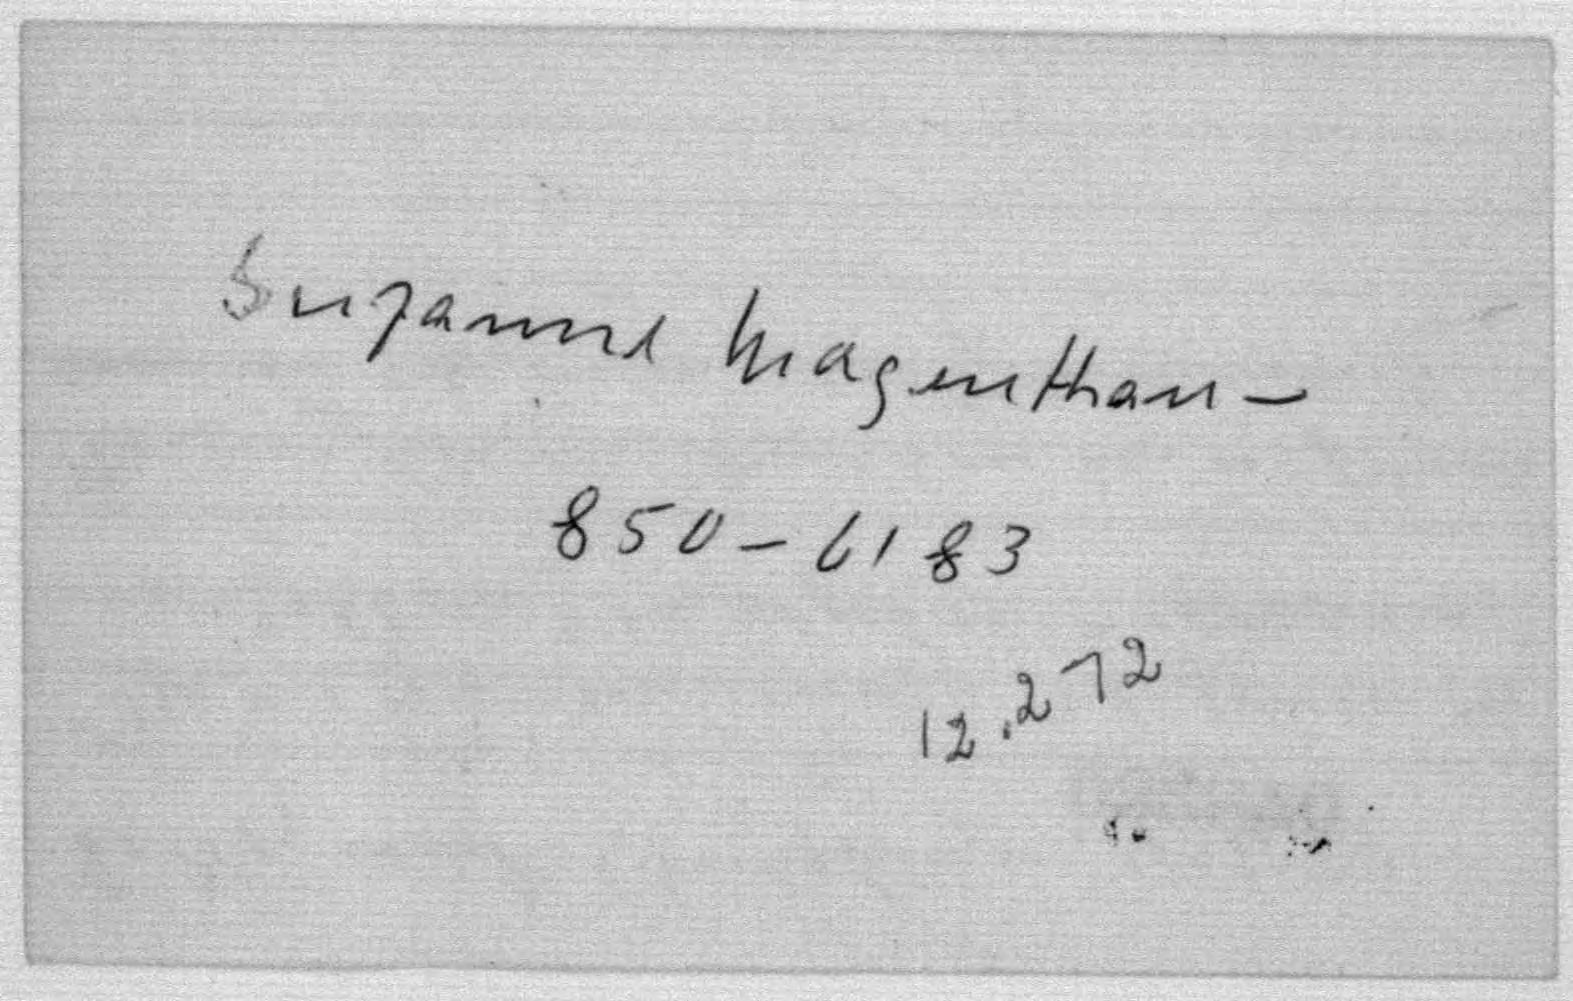 Suzanne Magenthan -
850-6183
12.272